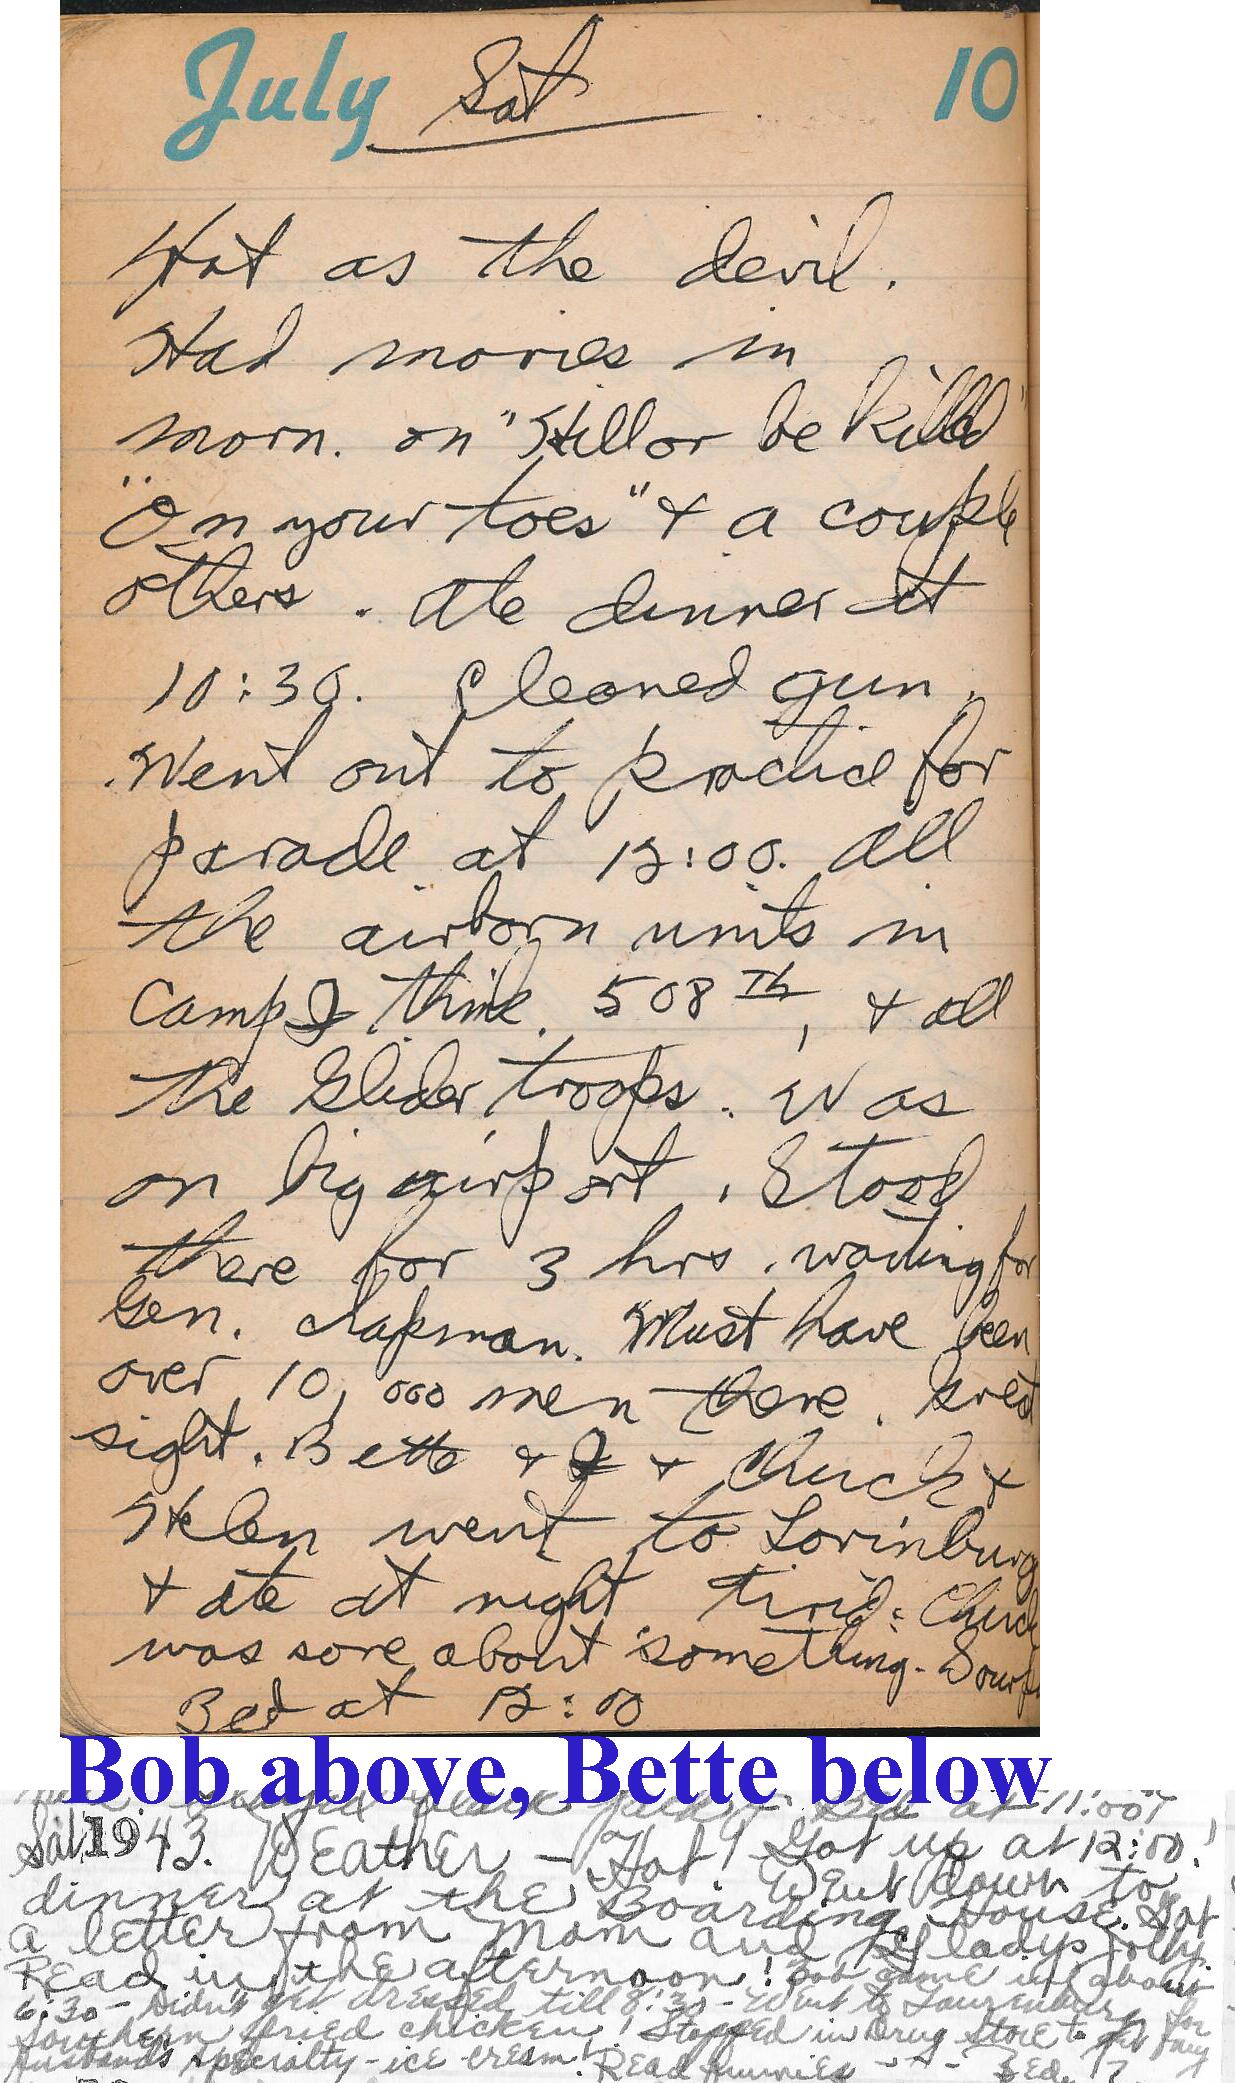 July Sat 10
Hot as the devil.
Had movies in
morn. on "Kill or be killed"
"On your toes" & a couple
others. Ate dinner at
10:30. Cleaned gun.
Went out to practice for
parade at 12:00. All
the airborn units in
Camp I think. 508th, & all
the Glider troops. Was
on big airport. Stood
there for 3 hrs. waiting for
Gen. Chapman. Must have been
over 10,000 men there. Great
sight. Bette & I & Chuck &
Helen went to Lorinburg
& ate at night. Tired. Chuck
was sore about something.
Bed at 12:00
Bob above, Bette below
Bed at 11:00
Sat. 1943. Weather - Hot! Got up at 12:00!
Went down to
dinner at the Boarding House. Got
a letter from Mom and Gladys Jolly.
Read in the afternoon! Bob came in about
6:30 - Didn't get dressed till 8:30 - Went to Laurenburg for
Southern fried chicken! Stopped in Drug Store to get my
husband's specialty - ice cream! Read funnies - Bed.